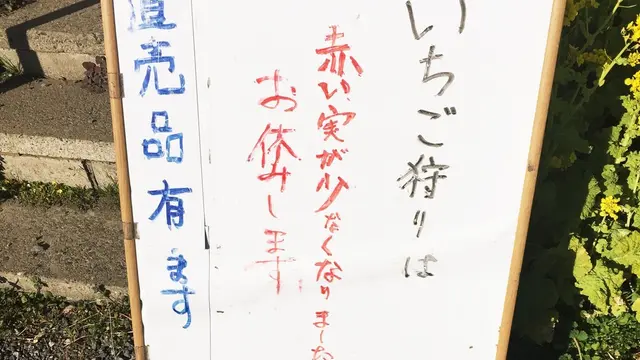 いちご狩りは
赤い実が少なくなりました
お休みします
直売品有ます